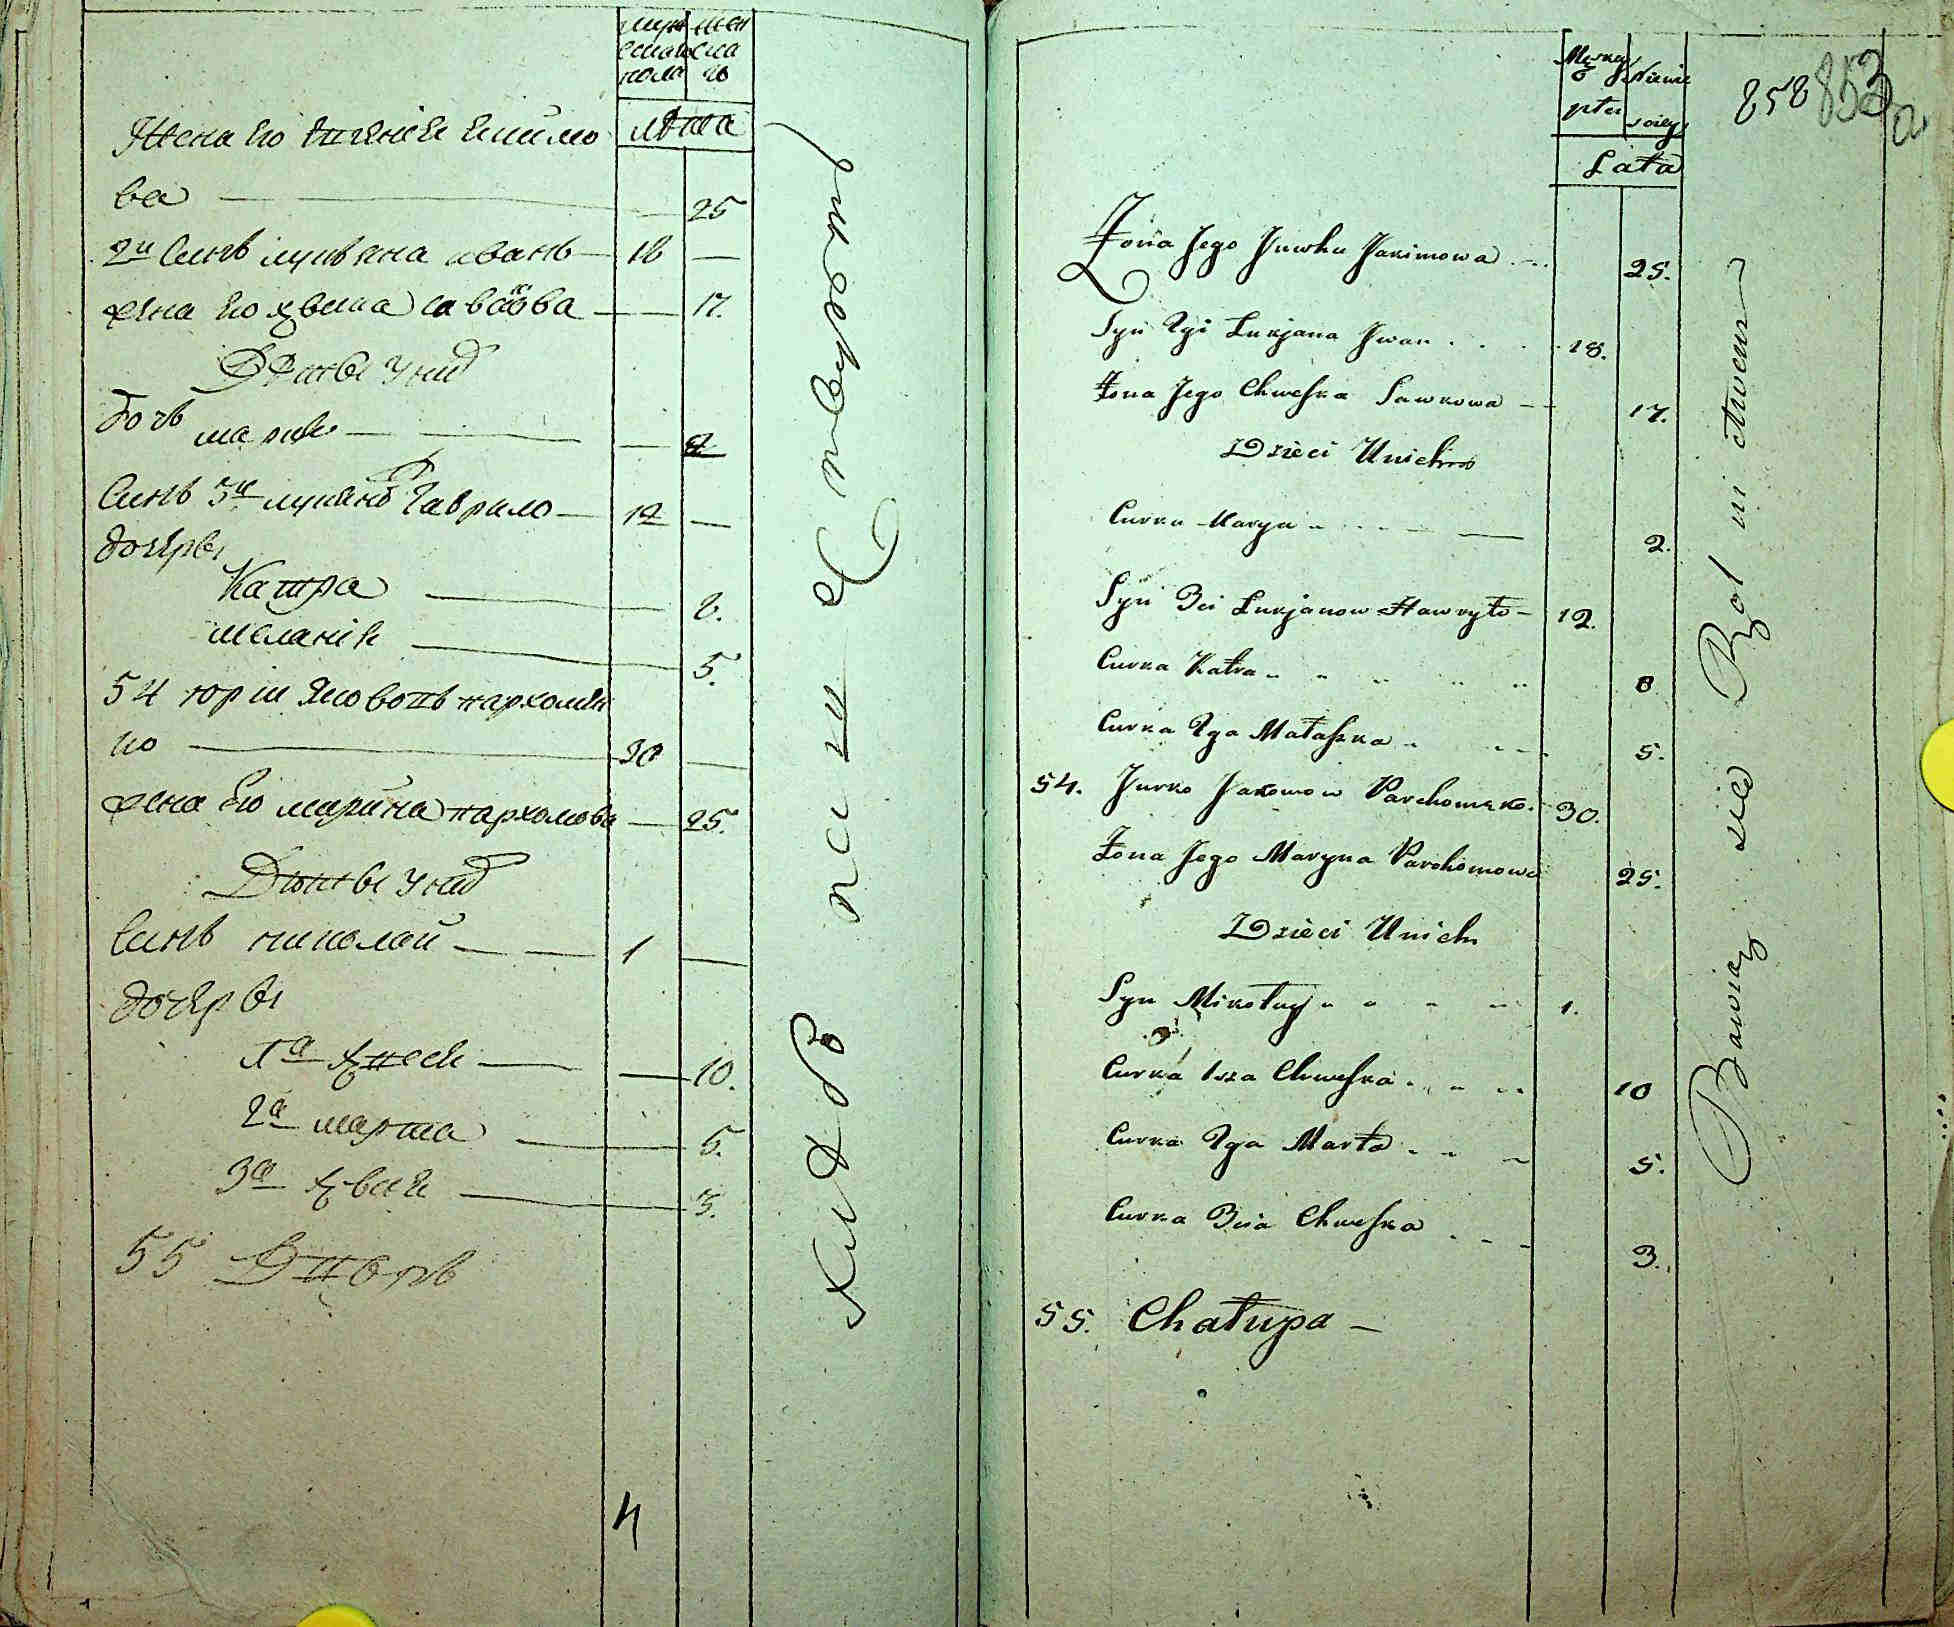 муж жен
ескаго ска
пола го
лѣта
Жена его Евгенія Екимо
ва — 25
2й Синъ лукяна иванъ — 18 —
жена его хвеска савкова — 17.
Дѣти в унид
Дочъ марія — 2
Синъ 3й лукянов Гаврило — 12 —
дочери
Катра — 8.
меланія — 5.
54 юрій Яковов пархомен
ко — 30 —
жена его марина пархомова — 25.
Дѣти в унид
Синъ николай — 1 —
дочери
1а — 10.
2а марта — 5.
3а — 3.
55 Дворъ
4
Męzkiey Niewie
płci sciey
Lata
858 853
a
Żona Jego Juwka Jakimowa 25.
Syn 2gi Lukjana Jwan 18.
Żona Jego Chweska Sawkowa 17.
Dzieci Unich
Curka Marya 2.
Syn 3ci Lukjanow Hawryło 12.
Curka Katra 8
Curka 2ga Małaszka 5.
54. Jurko Jakowow Parchomeko 30.
Żona Jego Maryna Parchomowa 25.
Dzieci Unich
Syn Mikołay 1.
Curka 1sza Chweska 10
Curka 2ga Marta 5.
Curka 3cia Chweska 3.
55. Chałupa —
Bawią się Rol ni ctwem